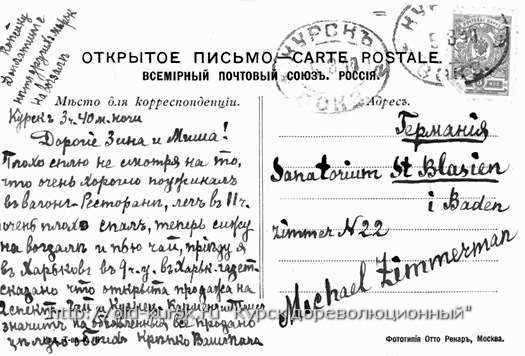 ОТКРЫТОЕ ПИСЬМО. CARTE POSTALE.
ВСЕМІРНЫЙ ПОЧТОВЫЙ СОЮЗЪ. РОССІЯ.
Мѣсто для корреспонденціи.
Адресъ.
КУРСКЪ
КУРСКЪ
на вокзалѣ
Курскъ 3ч. 40м. ночи
Дорогіе Зина и Миша!
Плохо сплю не смотря на то,
что очень хорошо поужиналъ
въ вагонѣ-Ресторанѣ, легъ въ 11ч.
очень плохо спалъ, теперь сижу
на вокзалѣ и пью чай, пріѣду я
въ Харьковъ въ 9 ч. у. въ Харьк. газет.
сказано что открыта продажа на
значитъ на объявленныя все продано
Крѣпко Вашъ папа
Германія
Sanatorium St Blasien
i Baden
Zimmer N 22
Michael Zimmerman
http://old-kursk.ru "Курскъдореволюционный"
Фототипія Отто Ренаръ, Москва.